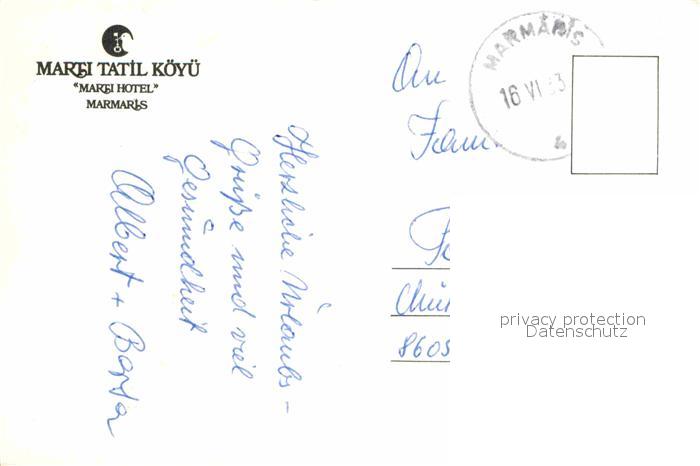 MARTI TATIL KÖYÜ
"MARTI HOTEL"
MARMARIS
Herzliche Urlaubs-
Grüße und viel
Gesundheit
Albert + Barta
MARMARİS
16 VI 83
An
Fam
8605
privacy protection
Datenschutz